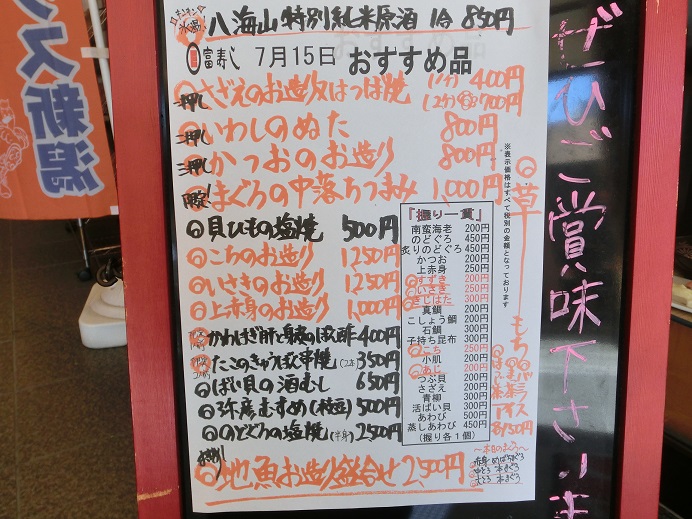 八海山 特別純米原酒 1合 850円
富寿し 7月15日 おすすめ品
押し さざえのお造り又はつぼ焼 400円
700円
押し いわしのぬた 800円
押し かつおのお造り 800円
限定! まぐろの中落ちつまみ 1,000円
貝ひもの塩焼 500円
こちのお造り 1,250円
いさきのお造り 1,250円
上赤身のお造り 1,000円
かわはぎ肝と身皮のぽん酢 400円
たこのきゅうばん串焼(2本) 350円
ばい貝の酒むし 650円
弥彦むすめ(枝豆) 500円
のどぐろの塩焼(半身) 2,500円
地魚お造り盛合せ 2,500円
※表示価格はすべて税別の金額となっております
『握り一貫』
南蛮海老 200円
のどぐろ 450円
炙りのどぐろ 450円
かつお 200円
上赤身 250円
すずき 200円
いさき 250円
きじはた 300円
真鯛 200円
こしょう鯛 200円
石鯛 300円
子持ち昆布 300円
こち 250円
小肌 200円
あじ 200円
つぶ貝 200円
さざえ 200円
青柳 300円
活ばい貝 300円
あわび 500円
蒸しあわび 450円
(握り各1個)
草もち
アイス
各150円
~本日のまぐろ~
赤身 めばちまぐろ
中とろ 本まぐろ
大とろ 本まぐろ
ぜひご賞味下さいま
ス新潟